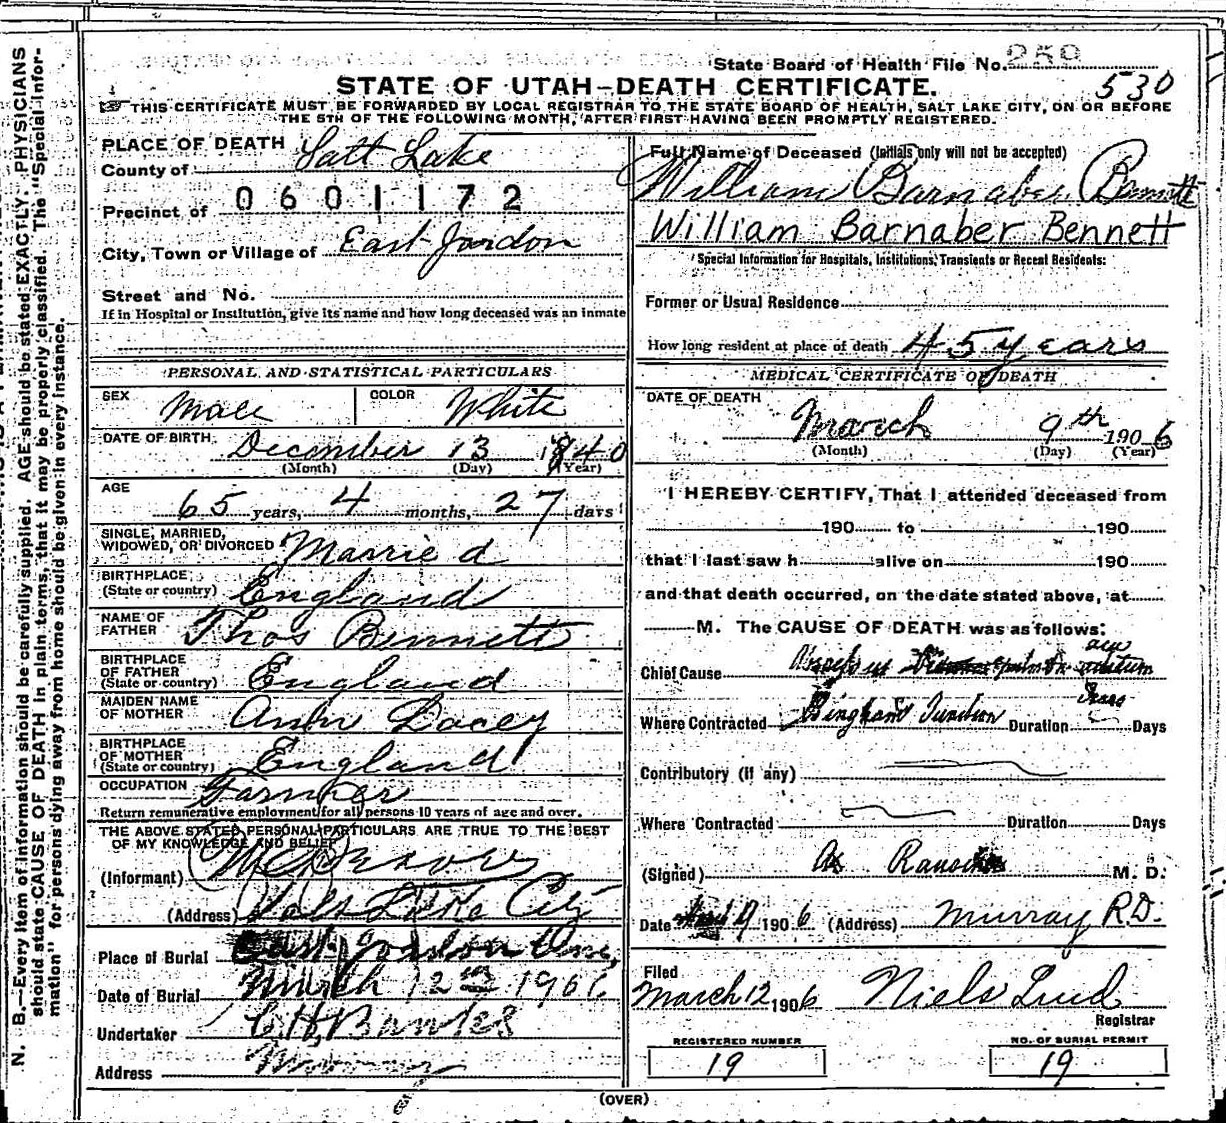 N. B.—Every item of information should be carefully supplied. AGE should be stated EXACTLY. PHYSICIANS
should state CAUSE OF DEATH in plain terms, that it may be properly classified. The "Special Infor-
mation" for persons dying away from home should be given in every instance.
State Board of Health File No. 259
530
STATE OF UTAH—DEATH CERTIFICATE.
THIS CERTIFICATE MUST BE FORWARDED BY LOCAL REGISTRAR TO THE STATE BOARD OF HEALTH, SALT LAKE CITY, ON OR BEFORE
THE 5TH OF THE FOLLOWING MONTH, AFTER FIRST HAVING BEEN PROMPTLY REGISTERED.
PLACE OF DEATH
County of Salt Lake
Precinct of 0601172
City, Town or Village of East Jordon
Street and No.
If in Hospital or Institution, give its name and how long deceased was an inmate
PERSONAL AND STATISTICAL PARTICULARS
SEX Male COLOR White
DATE OF BIRTH December 13 1840
(Month) (Day) (Year)
AGE
65 years, 4 months, 27 days
SINGLE, MARRIED,
WIDOWED, OR DIVORCED Married
BIRTHPLACE
(State or country) England
NAME OF
FATHER Thos Bennett
BIRTHPLACE
OF FATHER
(State or country) England
MAIDEN NAME
OF MOTHER Ann Lacey
BIRTHPLACE
OF MOTHER
(State or country) England
OCCUPATION Farmer
Return remunerative employment for all persons 10 years of age and over.
THE ABOVE STATED PERSONAL PARTICULARS ARE TRUE TO THE BEST
OF MY KNOWLEDGE AND BELIEF
(Informant)
(Address) Salt Lake City
Place of Burial East Jordon
Date of Burial March 12th 1906
Undertaker
Address Murray
Full Name of Deceased (Initials only will not be accepted)
William Barnaber Bennett
William Barnaber Bennett
Special Information for Hospitals, Institutions, Transients or Recent Residents:
Former or Usual Residence
How long resident at place of death 45 years
MEDICAL CERTIFICATE OF DEATH
DATE OF DEATH
March 9th 1906
(Month) (Day) (Year)
I HEREBY CERTIFY, That I attended deceased from
190 to 190
that I last saw h alive on 190
and that death occurred, on the date stated above, at
M. The CAUSE OF DEATH was as follows:
Chief Cause
Where Contracted Bingham Junction Duration Days
Contributory (If any)
Where Contracted Duration Days
(Signed) M. D.
Date 9 1906 (Address) Murray R.D.
Filed
March 12 1906 Niels Lind
Registrar
REGISTERED NUMBER
19
NO. OF BURIAL PERMIT
19
(OVER)